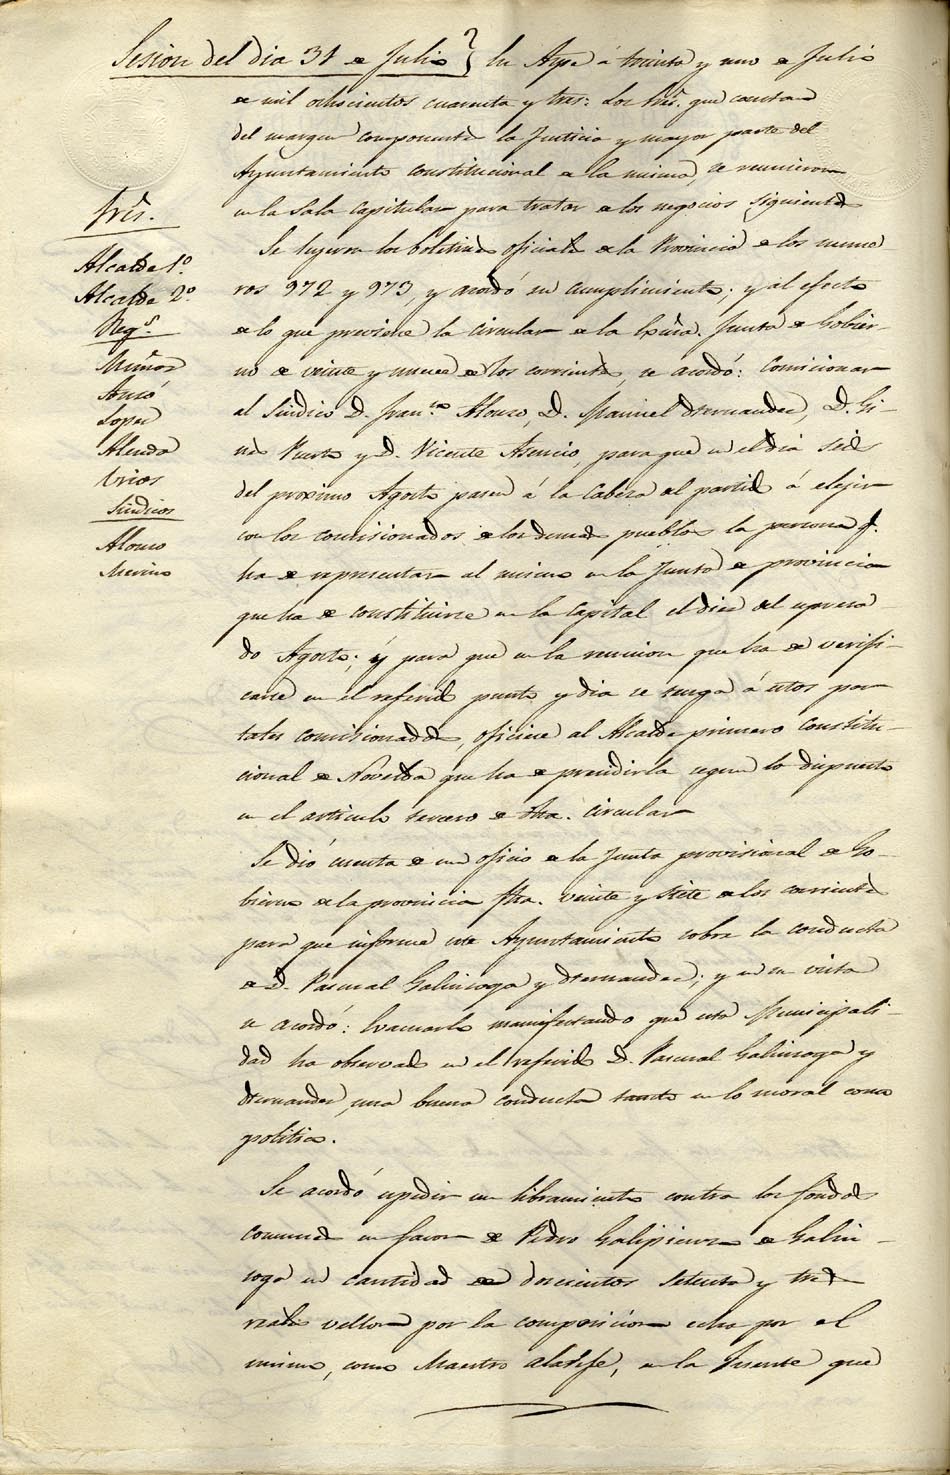 Sesion del dia 31 de Julio } En Aspe á treinta y uno de Julio
de mil ochocientos cuarenta y tres: Los Sres. que constan
del margen componentes la Justicia y mayor parte del
Ayuntamiento constitucional de la misma, se reunieron
en la Sala Capitular para tratar de los negocios siguientes
Sres.
Alcalde 1º.
Alcalde 2º.
Regs.
Muñoz
Lopez
Alenda
Brios
Sindicos
Alonso
Merino
Se leyeron los boletines oficiales de la Provincia de los nume
ros 972 y 973, y acordó su cumplimiento; y al efecto
de lo que previene la circular de la Exma. Junta de Gobier-
no de veinte y nueve de los corrientes, se acordó: Comisionar
al Sindico D. Franco. Alonso, D. Manuel Hernandez, D. Gi-
nes Puerto y D. Vicente Asencio, para que en el dia seis
del proximo Agosto pasen á la Cabeza del partido á elejir
con los comisionados de los demas pueblos la persona q.
ha de representar al mismo en la Junta de provincia
que ha de constituirse en la Capital el diez del espresa
do Agosto; y para que en la reunion que ha de verifi-
carse en el referido punto y dia se tenga á estos por
tales comisionados, oficiese al Alcalde primero constitu-
cional de Novelda que ha de presidirla segun lo dispuesto
en el articulo tercero de dha. circular
Se dió cuenta de un oficio de la Junta provisional de Go-
bierno de la provincia fha. veinte y siete de los corrientes
para que informe este Ayuntamiento sobre la conducta
de D. Pascual Galinsoga y Hernandez; y en su vista
se acordó: Evacuarlo manifestando que esta Municipali-
dad ha observado en el referido D. Pascual Galinsoga y
Hernandez una buena conducta tanto en lo moral como
politico.
Se acordó espedir un libramiento contra los fondos
comunes en favor de Pedro Galipienzo de Galin-
soga en cantidad de doscientos setenta y tres
reales vellon por la composicion echa por el
mismo, como Maestro alarife, en la fuente que